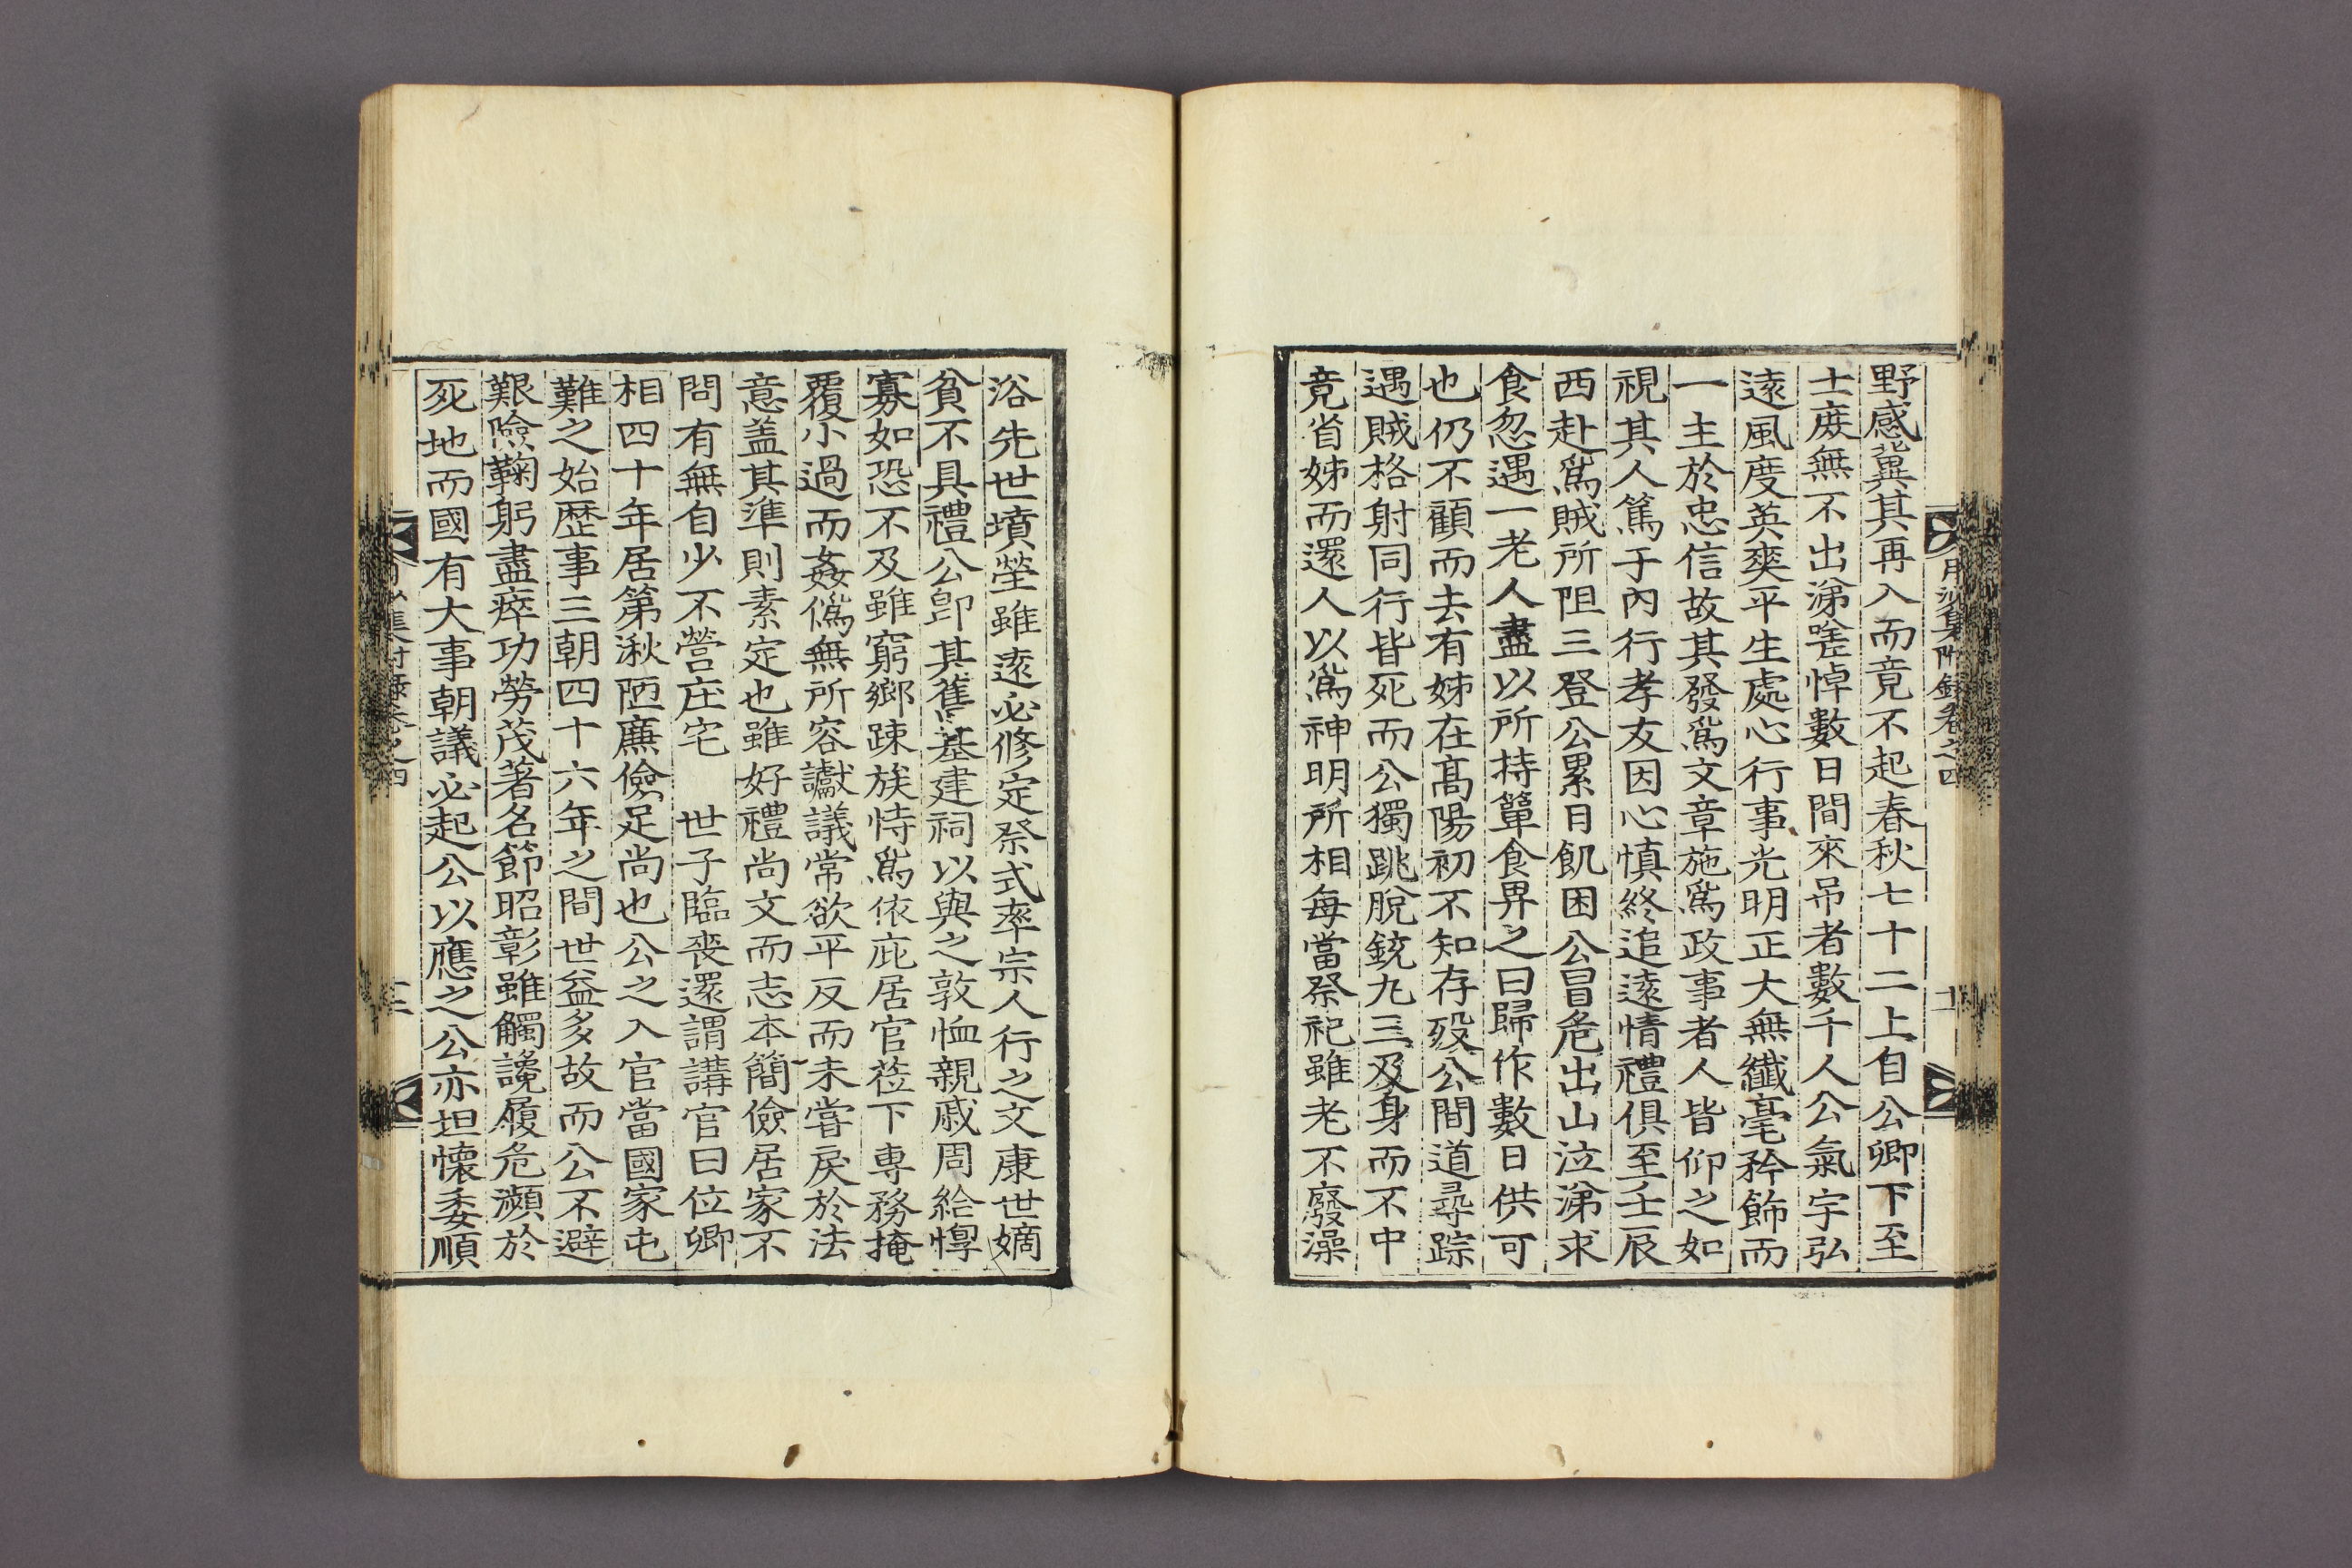 月沙集附錄卷之四
野感冀其再入而竟不起春秋七十二上自公卿下至
士庻無不出涕嗟悼數日間來吊者數千人公氣宇弘
遠風度英爽平生處心行事光明正大無纖毫矜飾而
一主於忠信故其發爲文章施爲政事者人皆仰之如
視其人篤于內行孝友因心愼終追遠情禮俱至壬辰
西赴爲賊所阻三登公累日飢困公冒危出山泣涕求
食忽遇一老人盡以所持簞食畀之曰歸作數日供可
也仍不顧而去有姊在高陽初不知存歿公間道尋踪
遇賊格射同行皆死而公獨跳脫銃丸三及身而不中
竟省姊而還人以爲神明所相每當祭祀雖老不廢澡
浴先世墳塋雖遠必修定祭式率宗人行之文康世嫡
貧不具禮公卽其舊基建祠以與之敦恤親戚周給惸
寡如恐不及雖窮鄕踈族恃爲依庇居官莅下專務掩
覆小過而姦僞無所容讞議常欲平反而未嘗戾於法
意盖其準則素定也雖好禮尙文而志本簡儉居家不
問有無自少不營庄宅　世子臨喪還謂講官曰位卿
相四十年居第湫陋廉儉足尙也公之入官當國家屯
難之始歷事三朝四十六年之間世益多故而公不避
艱險鞠躬盡瘁功勞茂著名節昭彰雖觸讒履危瀕於
死地而國有大事朝議必起公以應之公亦坦懷委順